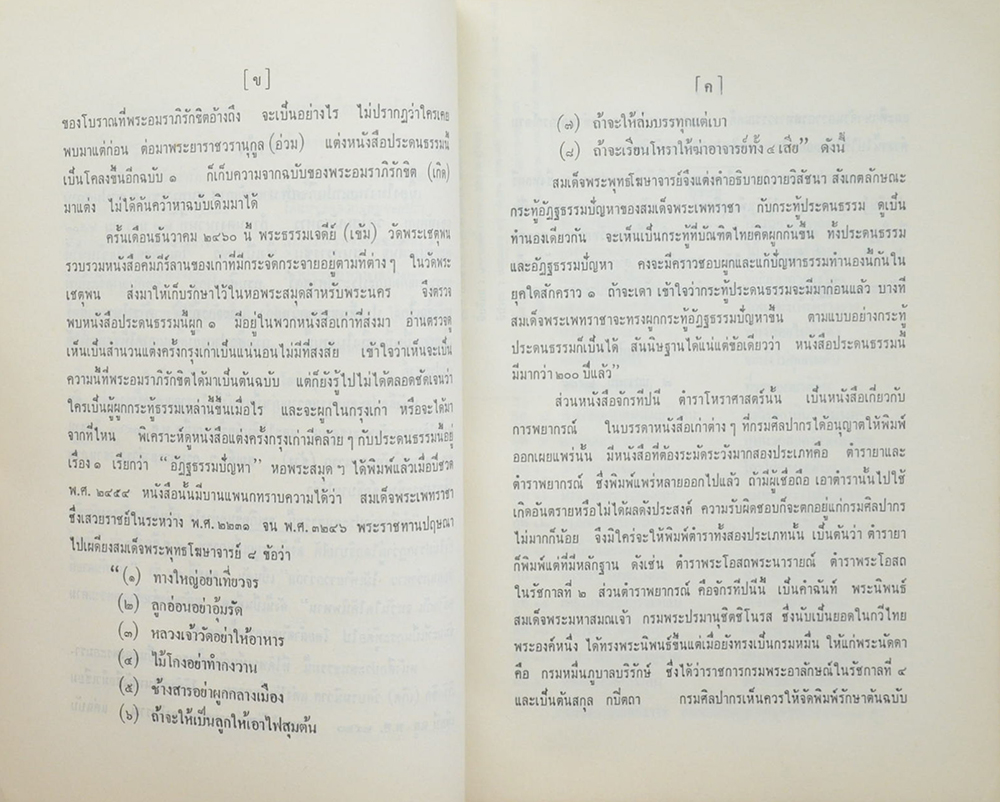 [ ข ]
ของโบราณที่พระอมราภิรักขิตอ้างถึง จะเป็นอย่างไร ไม่ปรากฏว่าใครเคย
พบมาแต่ก่อน ต่อมาพระยาราชวรานุกูล (อ่วม) แต่งหนังสือประดนธรรมนี้
เป็นโคลงขึ้นอีกฉบับ ๑ ก็เก็บความจากฉบับของพระอมราภิรักขิต (เกิด)
มาแต่ง ไม่ได้ค้นคว้าหาฉบับเดิมมาได้
ครั้นเดือนธันวาคม ๒๔๖๐ นี้ พระธรรมเจดีย์ (เข้ม) วัดพระเชตุพน
รวบรวมหนังสือคัมภีร์ลานของเก่าที่มีกระจัดกระจายอยู่ตามที่ต่าง ๆ ในวัดพระ
เชตุพน ส่งมาให้เก็บรักษาไว้ในหอพระสมุดสำหรับพระนคร จึงตรวจ
พบหนังสือประดนธรรมนี้ผูก ๑ มีอยู่ในพวกหนังสือเก่าที่ส่งมา อ่านตรวจดู
เห็นเป็นสำนวนแต่งครั้งกรุงเก่าเป็นแน่นอนไม่มีที่สงสัย เข้าใจว่าเห็นจะเป็น
ความนี้ที่พระอมราภิรักขิตได้มาเป็นต้นฉบับ แต่ก็ยังรู้ไปไม่ได้ตลอดชัดเจนว่า
ใครเป็นผู้ผูกกระทู้ธรรมเหล่านี้ขึ้นเมื่อไร และจะผูกในกรุงเก่า หรือจะได้มา
จากที่ไหน พิเคราะห์ดูหนังสือแต่งครั้งกรุงเก่ามีคล้าย ๆ กับประดนธรรมนี้อยู่
เรื่อง ๑ เรียกว่า “อัฏฐธรรมปัญหา” หอพระสมุด ฯ ได้พิมพ์แล้วเมื่อปีชวด
พ.ศ. ๒๔๕๔ หนังสือนั้นมีบานแพนกทราบความได้ว่า สมเด็จพระเพทราชา
ซึ่งเสวยราชย์ในระหว่าง พ.ศ. ๒๒๓๑ จน พ.ศ. ๓๒๔๖ พระราชทานปฤษณา
ไปเผดียงสมเด็จพระพุทธโฆษาจารย์ ๘ ข้อว่า
“(๑) ทางใหญ่อย่าเที่ยวจร
(๒) ลูกอ่อนอย่าอุ้มรัด
(๓) หลวงเจ้าวัดอย่าให้อาหาร
(๔) ไม้โกงอย่าทำกงวาน
(๕) ช้างสารอย่าผูกกลางเมือง
(๖) ถ้าจะให้เป็นลูกให้เอาไฟสุมต้น
[ ค ]
(๗) ถ้าจะให้ล่มบรรทุกแต่เบา
(๘) ถ้าจะเรียนโหราให้ฆ่าอาจารย์ทั้ง ๔ เสีย” ดังนี้
สมเด็จพระพุทธโฆษาจารย์จึงแต่งคำอธิบายถวายวิสัชนา สังเกตลักษณะ
กระทู้อัฏฐธรรมปัญหาของสมเด็จพระเพทราชา กับกระทู้ประดนธรรม ดูเป็น
ทำนองเดียวกัน จะเห็นเป็นกระทู้ที่บัณฑิตไทยคิดผูกกันขึ้น ทั้งประดนธรรม
และอัฏฐธรรมปัญหา คงจะมีคราวชอบผูกและแก้ปัญหาธรรมทำนองนี้กันใน
ยุคใดสักคราว ๑ ถ้าจะเดา เข้าใจว่ากระทู้ประดนธรรมจะมีมาก่อนแล้ว บางที
สมเด็จพระเพทราชาจะทรงผูกกระทู้อัฏฐธรรมปัญหาขึ้น ตามแบบอย่างกระทู้
ประดนธรรมก็เป็นได้ สันนิษฐานได้แน่แต่ข้อเดียวว่า หนังสือประดนธรรมนี้
มีมากว่า ๒๐๐ ปีแล้ว”
ส่วนหนังสือจักรทีปนี ตำราโหราศาสตร์นั้น เป็นหนังสือเกี่ยวกับ
การพยากรณ์ ในบรรดาหนังสือเก่าต่าง ๆ ที่กรมศิลปากรได้อนุญาตให้พิมพ์
ออกเผยแพร่นั้น มีหนังสือที่ต้องระมัดระวังมากสองประเภทคือ ตำรายาและ
ตำราพยากรณ์ ซึ่งพิมพ์แพร่หลายออกไปแล้ว ถ้ามีผู้เชื่อถือ เอาตำรานั้นไปใช้
เกิดอันตรายหรือไม่ได้ผลดังประสงค์ ความรับผิดชอบก็จะตกอยู่แก่กรมศิลปากร
ไม่มากก็น้อย จึงมิใคร่จะให้พิมพ์ตำราทั้งสองประเภทนั้น เป็นต้นว่า ตำรายา
ก็พิมพ์แต่ที่มีหลักฐาน ดังเช่น ตำราพระโอสถพระนารายณ์ ตำราพระโอสถ
ในรัชกาลที่ ๒ ส่วนตำราพยากรณ์ คือจักรทีปนีนี้ เป็นคำฉันท์ พระนิพนธ์
สมเด็จพระมหาสมณเจ้า กรมพระปรมานุชิตชิโนรส ซึ่งนับเป็นยอดในกวีไทย
พระองค์หนึ่ง ได้ทรงพระนิพนธ์ขึ้นแต่เมื่อยังทรงเป็นกรมหมื่น ให้แก่พระนัดดา
คือ กรมหมื่นภูบาลบริรักษ์ ซึ่งได้ว่าราชการกรมพระอาลักษณ์ในรัชกาลที่ ๔
และเป็นต้นสกุล กปิตถา กรมศิลปากรเห็นควรให้จัดพิมพ์รักษาต้นฉบับ